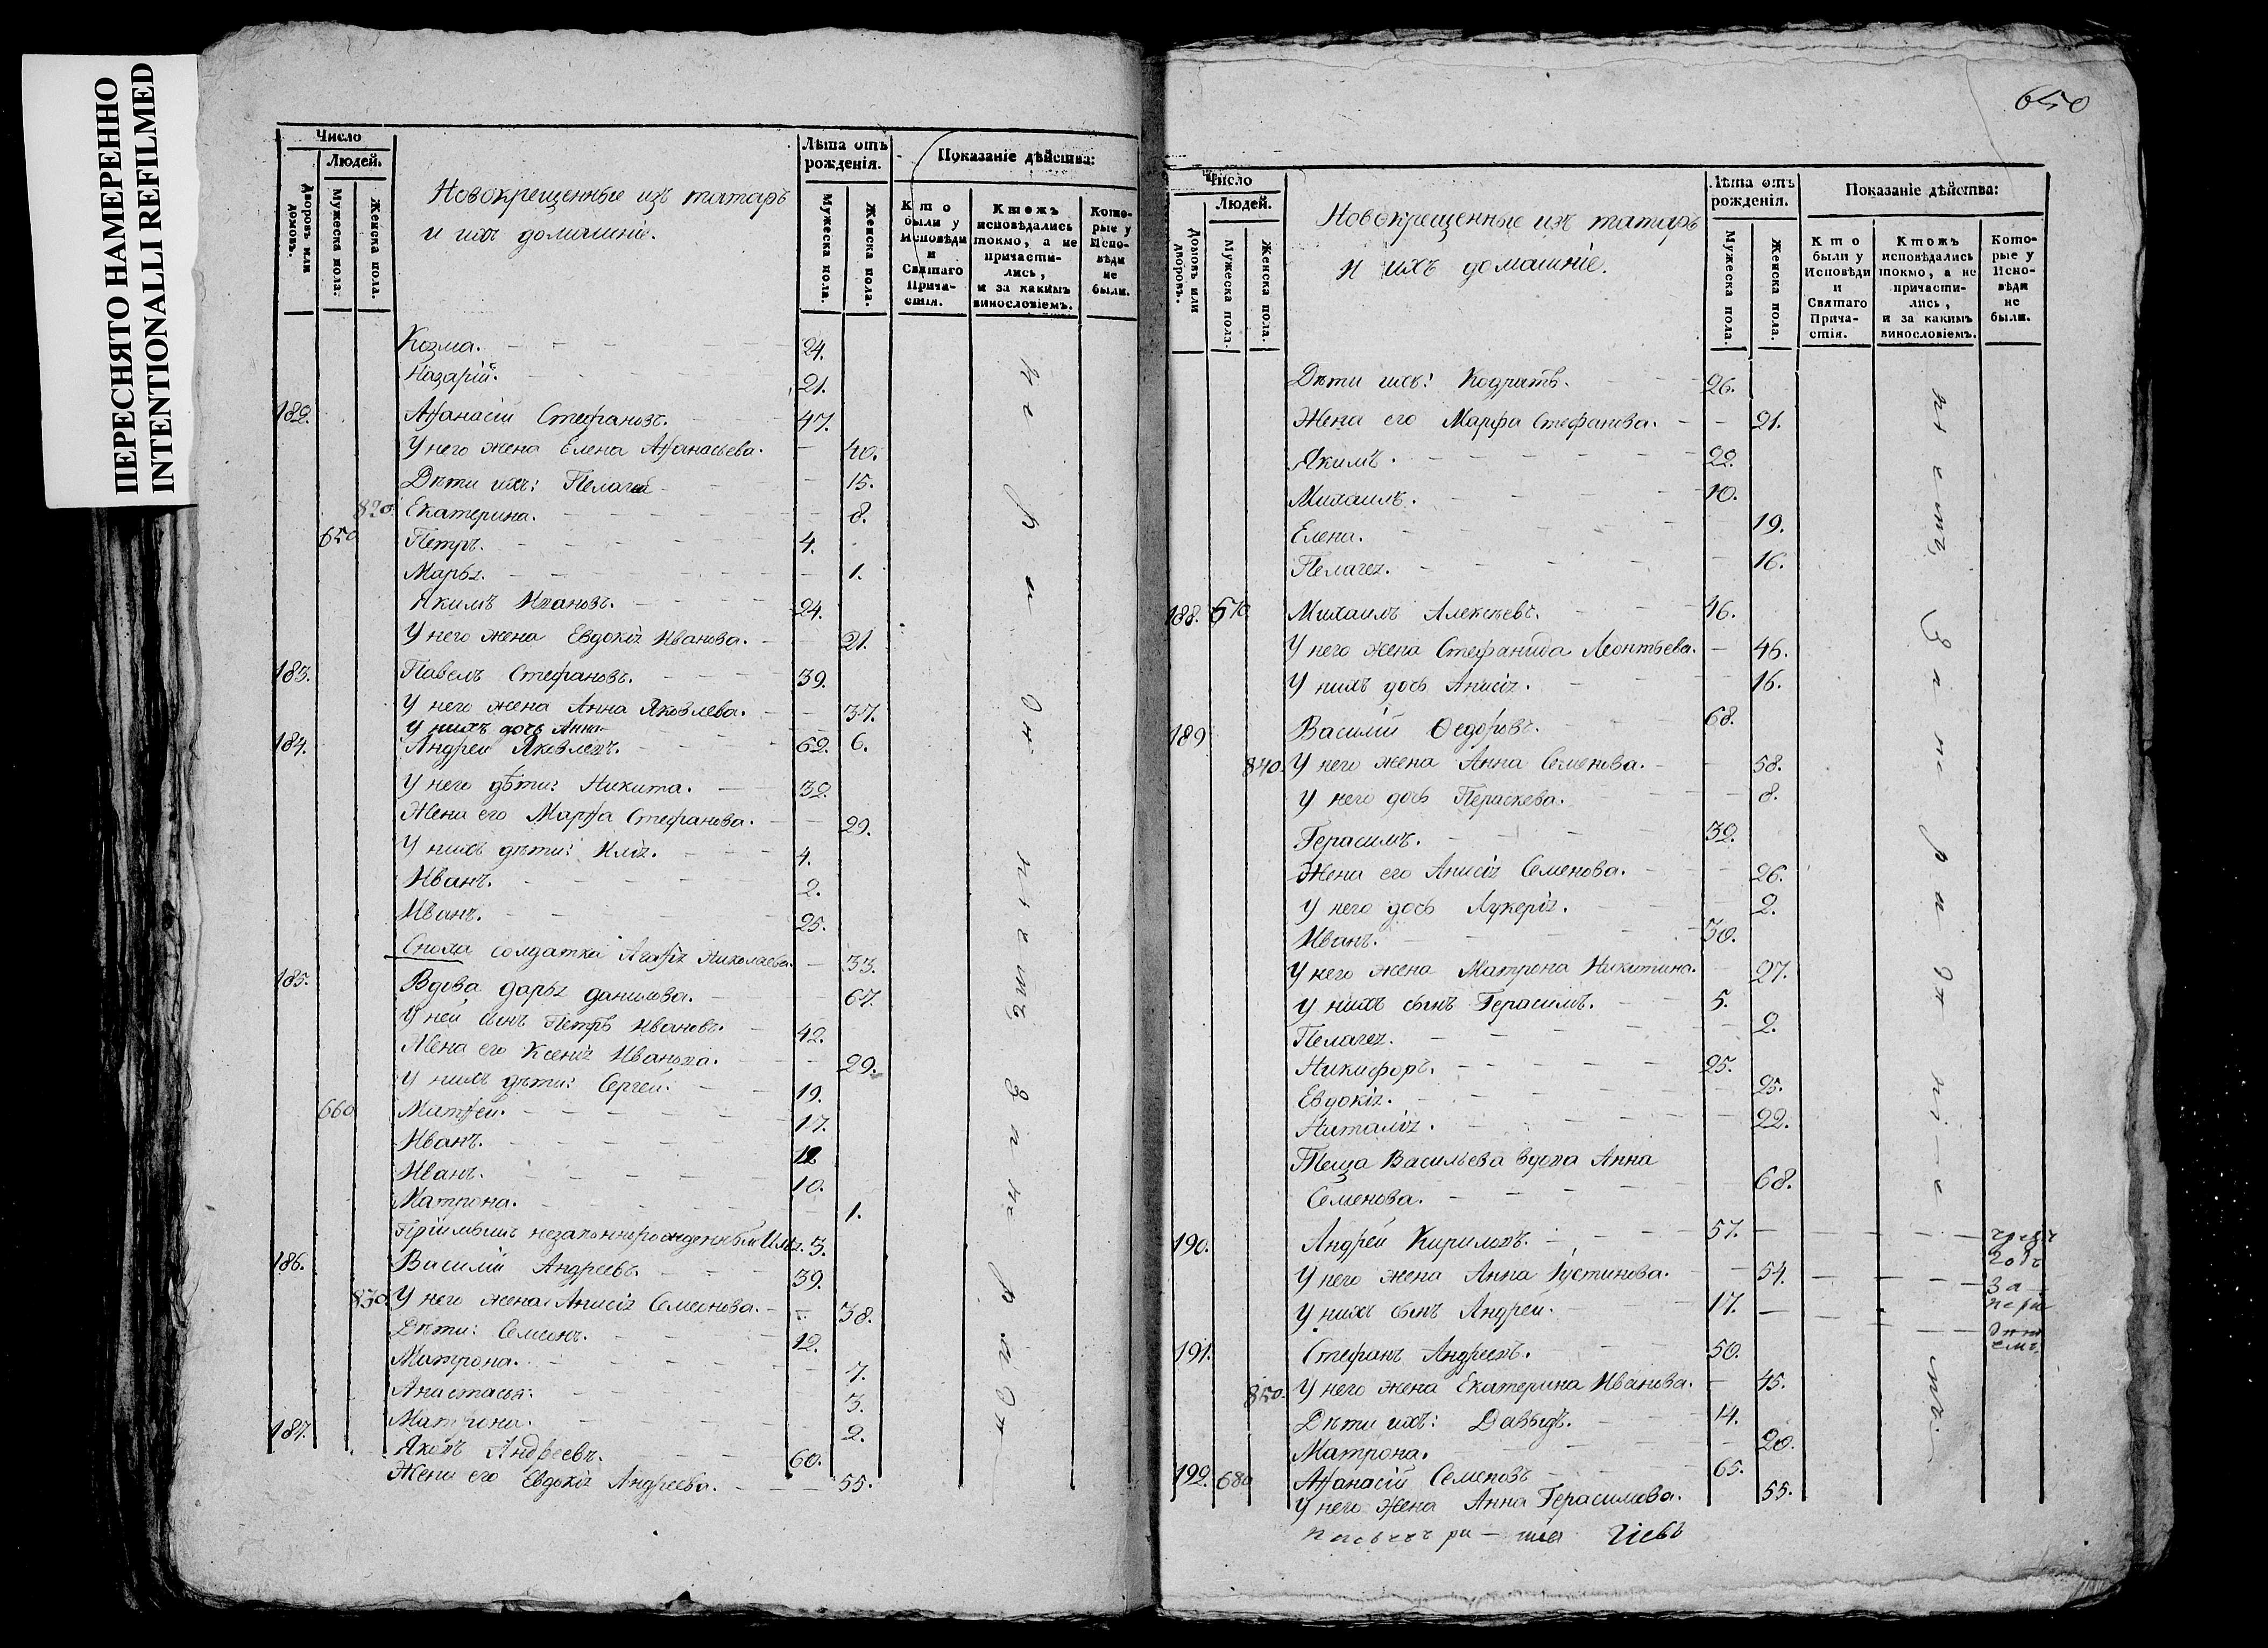 ПЕРЕСНЯТО НАМЕРЕННО
INTENTIONALLI REFILMED
Число
Людей.
Дворовъ или домовъ.
Мужеска пола.
Женска пола.
Новокрещенные изъ татаръ
и ихъ домашніе.
Лѣта отъ рожденія.
Мужеска пола.
Женска пола.
Показаніе дѣйства:
Кто были у Исповѣди и Святаго Прича-стія.
Ктожъ исповѣдались токмо, а не причасти-лись, и за какимъ винословіемъ.
Кото-рые у Испо-вѣди не были.
Козма. 24.
Назарій. 21.
182. Афанасій Стефановъ. 47.
У него жена Елена Афанасьева. 40.
Дѣти ихъ: Пелагея 15.
820. Екатерина. 8.
650 Петръ. 4.
Марья. 1.
Якимъ Ивановъ. 24.
У него жена Евдокія Иванова. 21.
183. Павелъ Стефановъ. 39.
У него жена Анна Яковлева. 37.
У нихъ дочь Анна 6.
184. Андрей Яковлевъ. 62.
У него дѣти: Никита. 32.
Жена его Марфа Стефанова. 29.
У нихъ дѣти: Илія. 4.
Иванъ. 2.
Иванъ. 25.
Сноха солдатка Агафія Николаева. 33.
185. Вдова дарья данилова. 67.
У ней сынъ Петръ Ивановъ. 42.
Жена его Ксенія Иванова. 29.
У нихъ дѣти: Сергей. 19.
660 Матфей. 17.
Иванъ. 12
Иванъ. 10.
Матрона. 1.
Пріимышъ незаконнорожденный Илья. 3.
186. Василій Андреевъ. 39.
830. У него жена Анисія Семенова. 38.
Дѣти: Семенъ. 12.
Матрона. 7.
Анастасья. 3.
Матрона. 2.
187. Яковъ Андреевъ. 60.
Жена его Евдокія Андреева. 55.
650
Число
Людей.
Домовъ или дворовъ.
Мужеска пола.
Женска пола.
Новокрещенные изъ татаръ
и ихъ домашніе.
Лѣта отъ рожденія.
Мужеска пола.
Женска пола.
Показаніе дѣйства:
Кто были у Исповѣди и Святаго Прича-стія.
Ктожъ исповѣдались токмо, а не причасти-лись, и за какимъ винословіемъ.
Кото-рые у Испо-вѣди не были.
Дѣти ихъ: Кодратъ. 26.
Жена его Марфа Стефанова. 21.
Якимъ. 22.
Михаилъ. 10.
Елена. 19.
Пелагея. 16.
188. 670 Михаилъ Алексѣевъ. 46.
У него жена Стефанида Леонтьева. 46.
У нихъ дочь Анисія. 16.
189 Василій Ѳедоровъ. 68.
840. У него жена Анна Семенова. 58.
У него дочь Параскева. 8.
Герасимъ. 32.
Жена его Анисія Семенова. 26.
У него дочь Лукерія. 2.
Иванъ. 30.
У него жена Матрона Никитина. 27.
У нихъ сынъ Герасимъ. 5.
Пелагея. 2.
Никифоръ. 25.
Евдокія. 25.
Наталія. 22.
Теща Васильева вдова Анна
Семенова. 68.
190. Андрей Кириловъ. 57.
У него жена Анна Густинова. 54.
У нихъ сынъ Андрей. 17.
191. Стефанъ Андреевъ. 50.
850. У него жена Екатерина Иванова. 45.
Дѣти ихъ: Давыдъ. 14.
Матрона. 20.
192. 680 Афанасій Семеновъ 65.
У него жена Анна Герасимова. 55.